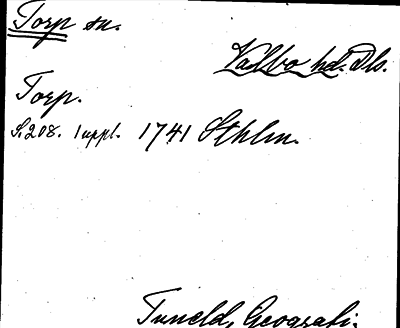 Torp sn.
Valbo hd. Dls.
Torp.
S.208. 1 uppl. 1741 Sthlm.
Tuneld, Geografi.